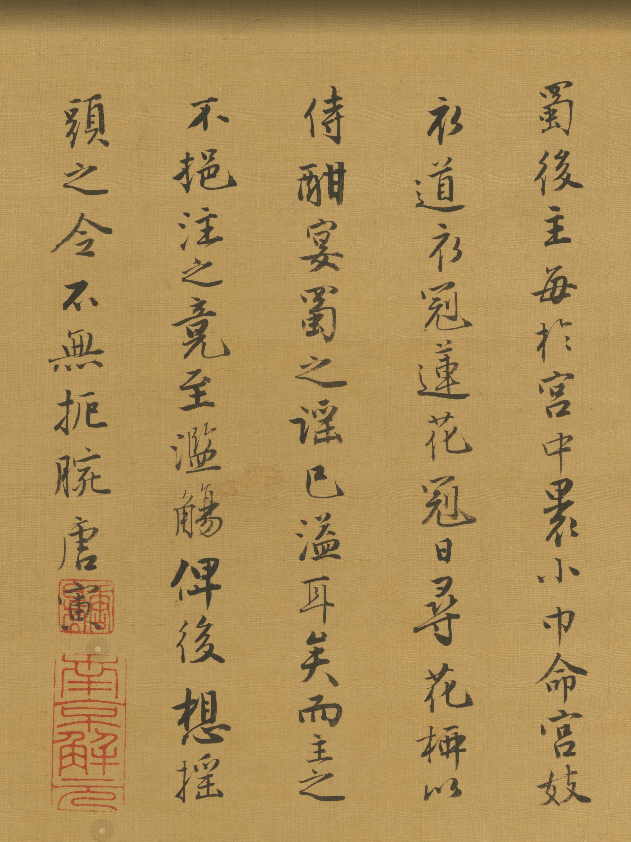 蜀後主每於宮中裹小巾命宮妓
衣道衣冠蓮花冠日尋花柳以
侍酣宴蜀之謠已溢耳矣而主之
不挹注之竟至濫觴俾後想搖
頭之令不無扼腕唐寅
南京解元